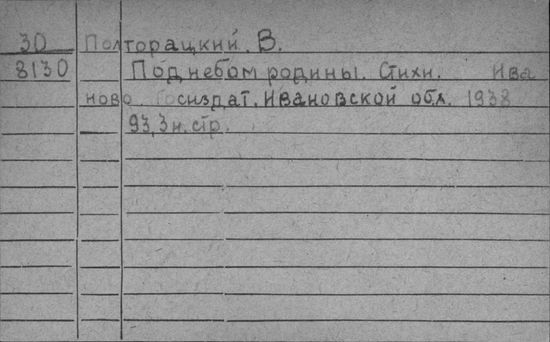 30 Полторацкий, В.
8130 Под небом родины. Стихи. Ива
ново. Госиздат. Ивановской обл. 1938
93,3 н. стр.